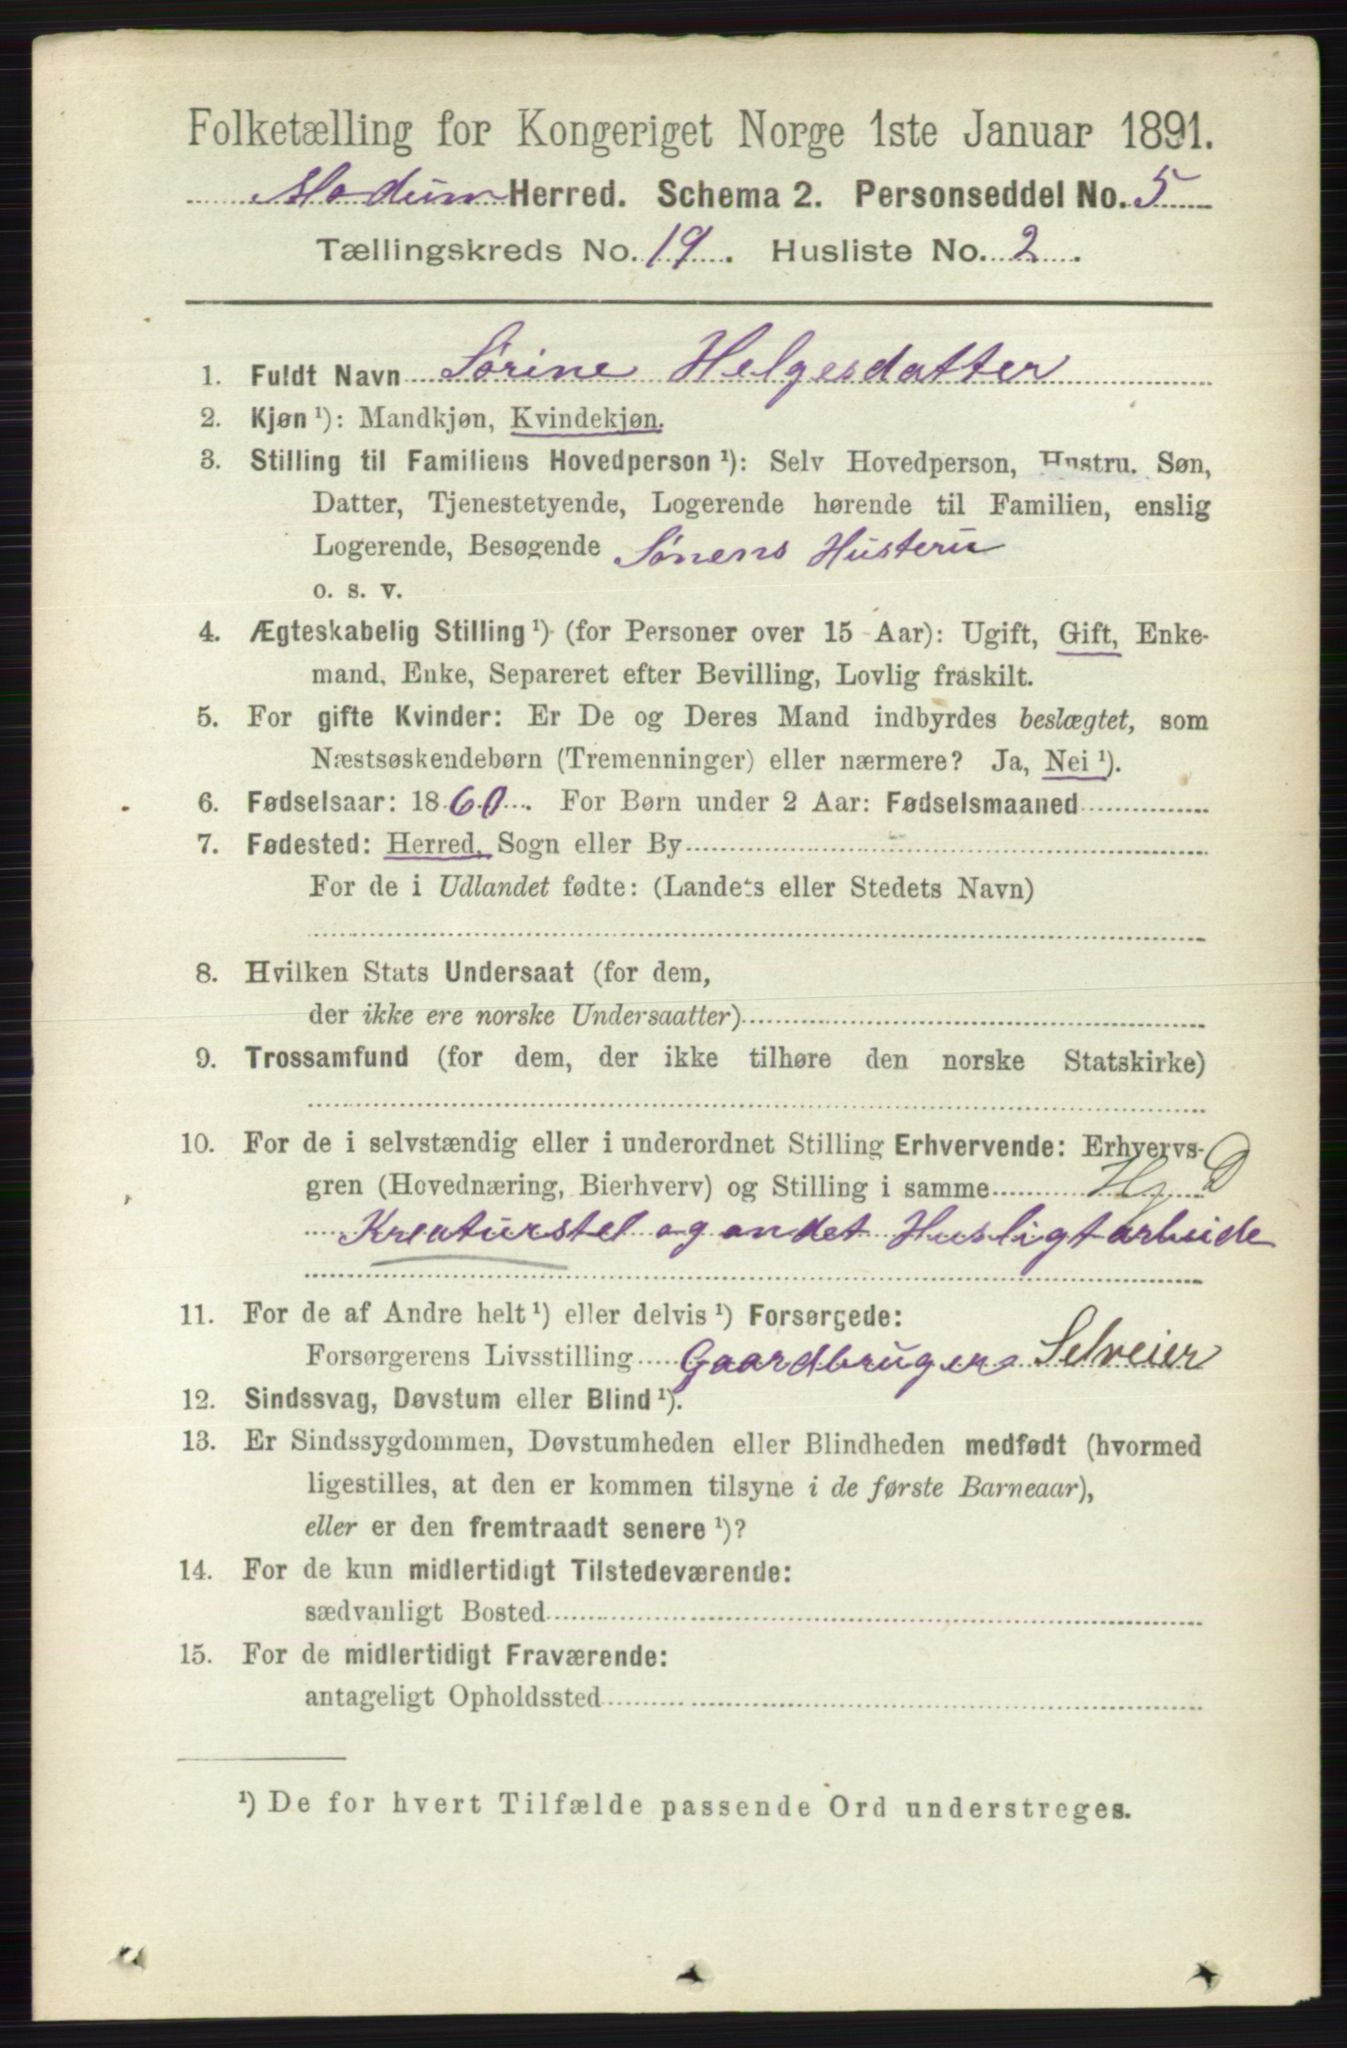 Folketælling for Kongeriget Norge 1ste Januar 1891.
Modum Herred. Schema 2. Personseddel No. 5
Tællingskreds No. 19. Husliste No. 2.
1. Fuldt Navn Sørine Helgesdatter
2. Kjøn ¹): Mandkjøn, Kvindekjøn.
3. Stilling til Familiens Hovedperson ¹): Selv Hovedperson, Hustru, Søn,
Datter, Tjenestetyende, Logerende hørende til Familien, enslig
Logerende, Besøgende Sønens Husteru
o. s. v.
4. Ægteskabelig Stilling ¹) (for Personer over 15 Aar): Ugift, Gift, Enke-
mand, Enke, Separeret efter Bevilling, Lovlig fraskilt.
5. For gifte Kvinder: Er De og Deres Mand indbyrdes beslægtet, som
Næstsøskendebørn (Tremenninger) eller nærmere? Ja, Nei ¹).
6. Fødselsaar: 1860. For Børn under 2 Aar: Fødselsmaaned
7. Fødested: Herred, Sogn eller By
For de i Udlandet fødte: (Landets eller Stedets Navn)
8. Hvilken Stats Undersaat (for dem,
der ikke ere norske Undersaatter)
9. Trossamfund (for dem, der ikke tilhøre den norske Statskirke)
10. For de i selvstændig eller i underordnet Stilling Erhvervende: Erhvervs-
gren (Hovednæring, Bierhverv) og Stilling i samme Hj D
Kreaturstel og andet Husligtarbeide
11. For de af Andre helt ¹) eller delvis ¹) Forsørgede:
Forsørgerens Livsstilling Gaardbrugers Selveier
12. Sindssvag, Døvstum eller Blind ¹).
13. Er Sindssygdommen, Døvstumheden eller Blindheden medfødt (hvormed
ligestilles, at den er kommen tilsyne i de første Barneaar),
eller er den fremtraadt senere ¹)?
14. For de kun midlertidigt Tilstedeværende:
sædvanligt Bosted
15. For de midlertidigt Fraværende:
antageligt Opholdssted
¹) De for hvert Tilfælde passende Ord understreges.